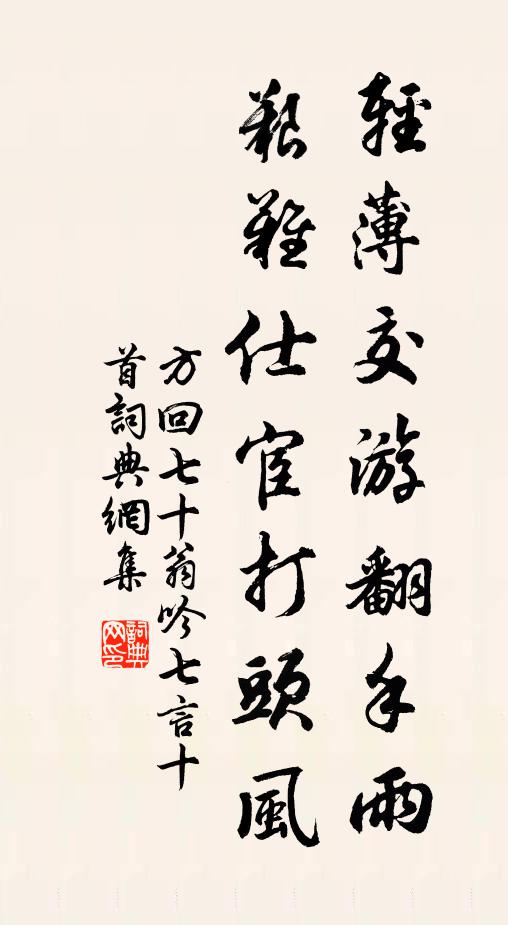 輕薄交游翻手雨
艱難仕宦打頭風
方回七十翁吟七言十
首詞典網集
詞典網印